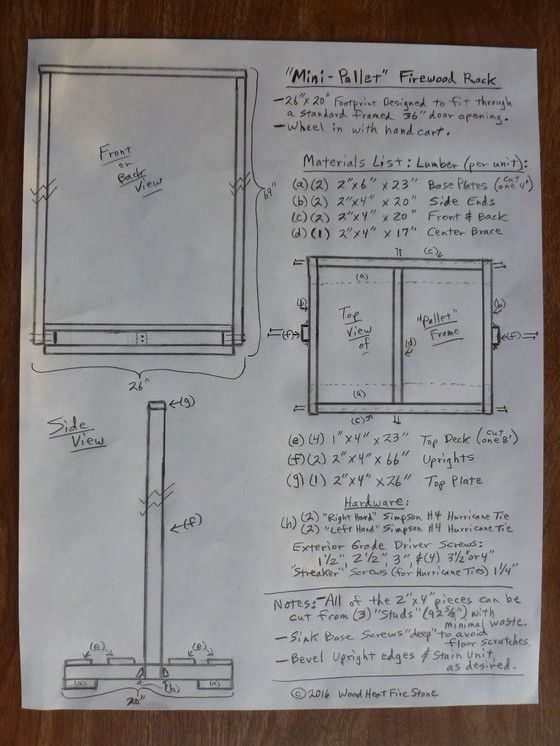 "Mini-Pallet" Firewood Rack
-26"x20" Footprint Designed to fit through
a standard framed 36" door opening.
-Wheel in with hand cart.
Materials List: Lumber (per unit):
(a) (2) 2"x6" x 23" Base Plates (cut one 4')
(b) (2) 2"x4" x 20" Side Ends
(c) (2) 2"x4" x 20" Front & Back
(d) (1) 2"x4" x 17" Center Brace
Front
or
Back
View
69"
26"
(c)
(a)
(b)
(b)
Top
View
of
"Pallet"
Frame
(f)
(d)
(f)
(a)
(c)
(e) (4) 1"x4" x 23" Top Deck (cut one 8')
(f) (2) 2"x4" x 66" Uprights
(g) (1) 2"x4" x 26" Top Plate
Hardware:
(h) (2) "Right Hand" Simpson H4 Hurricane Tie
(2) "Left Hand" Simpson H4 Hurricane Tie
Exterior Grade Driver Screws:
1 1/2", 2 1/2", 3" & (4) 3 1/2" or 4"
"Streaker" Screws (for Hurricane Ties) 1 1/4"
Notes: -All of the 2"x4" pieces can be
cut from (3) "Studs" (92 5/8") with
minimal waste.
-Sink Base Screws "deep" to avoid
floor scratches.
-Bevel Upright edges & Stain Unit
as desired.
© 2016 Wood Heat Fire Stone
Side
View
(g)
(f)
(e)
(e)
(a)
(h)
(a)
20"